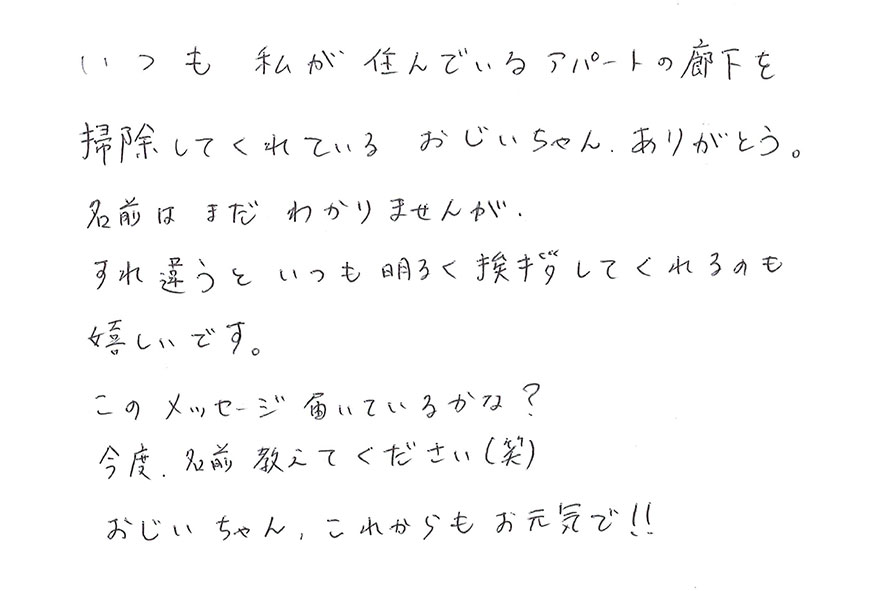 いつも 私が 住んでいるアパートの廊下を
掃除してくれている おじいちゃん、ありがとう。
名前は まだ わかりませんが、
すれ違うと いつも 明るく挨拶してくれるのも
嬉しいです。
この メッセージ 届いているかな？
今度、名前 教えてください(笑)
おじい ちゃん、これからも お元気で!!